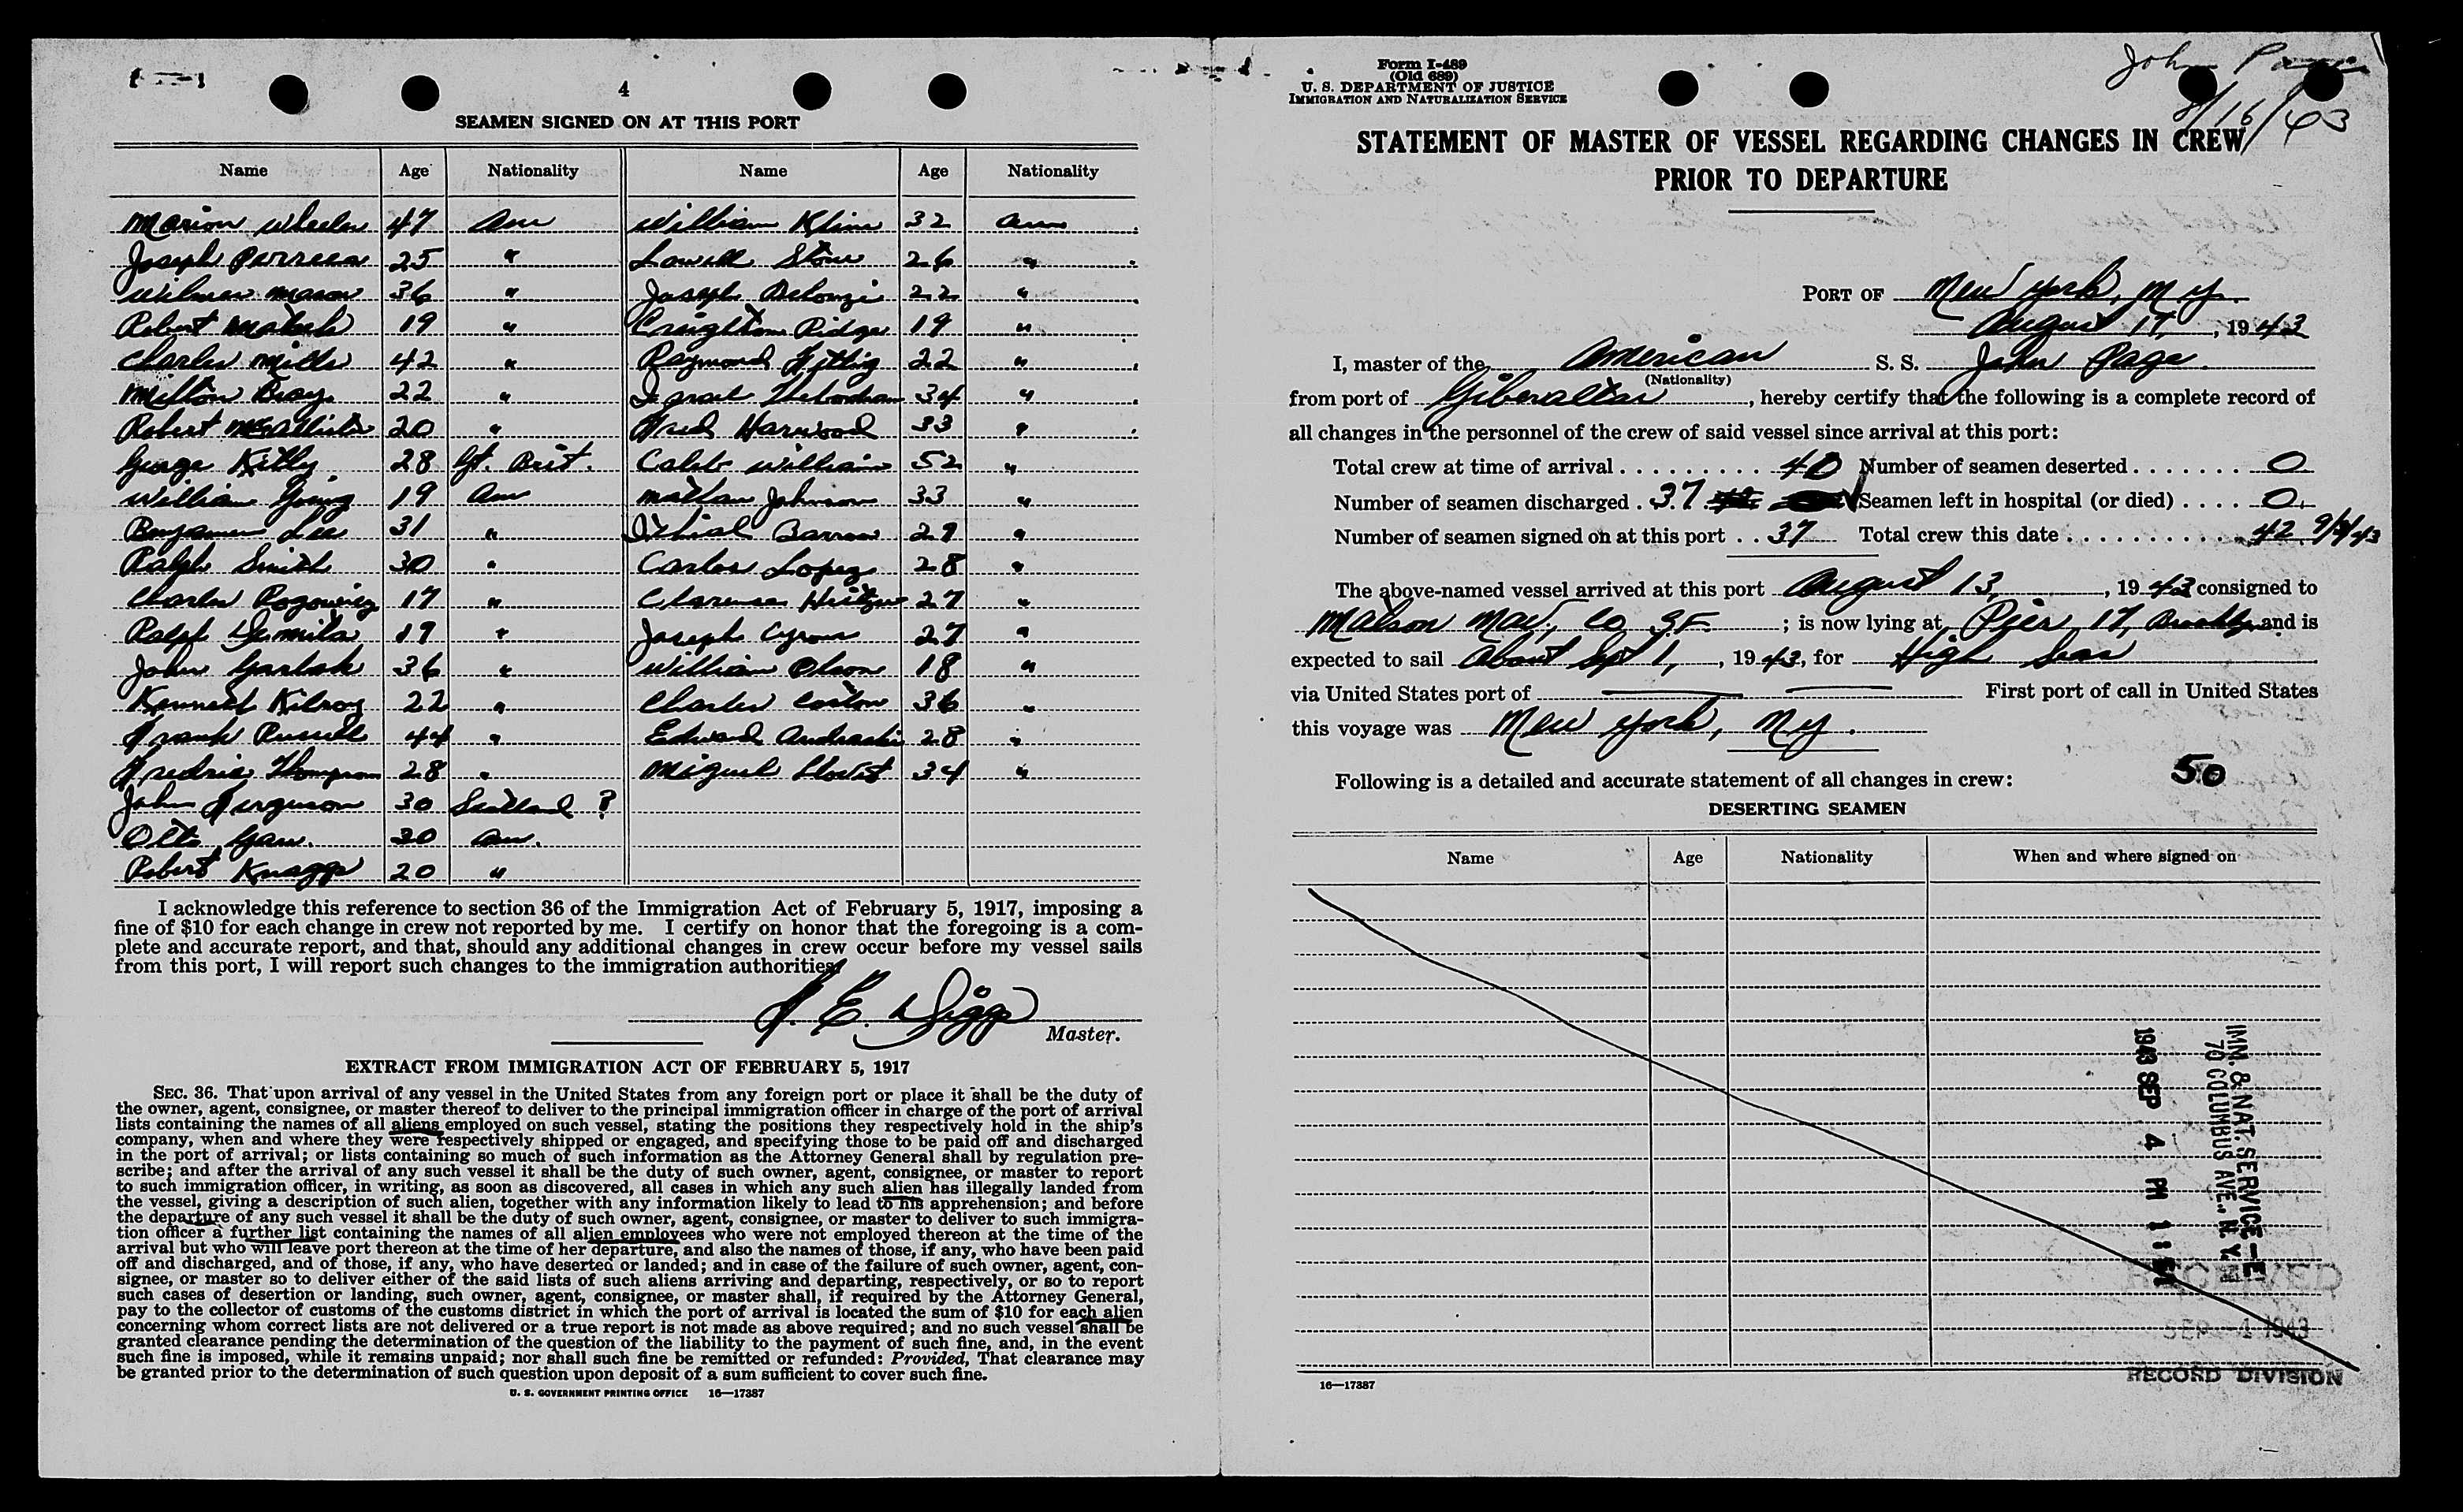 4
SEAMEN SIGNED ON AT THIS PORT
Name Age Nationality Name Age Nationality
Marion Wheeler 47 Am William Kline 32 Am
Joseph Perreea 25 " Lowell Stone 26 "
Wilmer Mason 36 " Joseph 22 "
Robert 19 " Creighton Ridge 19 "
Charles Mills 42 " Raymond Fittig 22 "
Milton Bray 22 " Israel 34 "
Robert McAllister 20 " Fred Harwood 33 "
George Kitly 28 Gt. Brit. Caleb William 52 "
William Going 19 Am Nathan Johnson 33 "
Benjamin Lee 31 " Barrow 29 "
Ralph Smith 30 " Carlos Lopez 28 "
Charles 17 " Clarence 27 "
Ralph 19 " Joseph Cyrous 27 "
John Garlak 36 " William Olson 18 "
Kenneth Kilroy 22 " Charles Caston 36 "
Frank Russell 44 " Edward Andraski 28 "
Fredric Thompson 28 " Miguel 34 "
John Ferguson 30 Scotland ?
Otto Gau. 30 Am.
Robert Knaggs 20 "
I acknowledge this reference to section 36 of the Immigration Act of February 5, 1917, imposing a
fine of $10 for each change in crew not reported by me. I certify on honor that the foregoing is a com-
plete and accurate report, and that, should any additional changes in crew occur before my vessel sails
from this port, I will report such changes to the immigration authorities.
Master.
EXTRACT FROM IMMIGRATION ACT OF FEBRUARY 5, 1917
SEC. 36. That upon arrival of any vessel in the United States from any foreign port or place it shall be the duty of
the owner, agent, consignee, or master thereof to deliver to the principal immigration officer in charge of the port of arrival
lists containing the names of all aliens employed on such vessel, stating the positions they respectively hold in the ship's
company, when and where they were respectively shipped or engaged, and specifying those to be paid off and discharged
in the port of arrival; or lists containing so much of such information as the Attorney General shall by regulation pre-
scribe; and after the arrival of any such vessel it shall be the duty of such owner, agent, consignee, or master to report
to such immigration officer, in writing, as soon as discovered, all cases in which any such alien has illegally landed from
the vessel, giving a description of such alien, together with any information likely to lead to his apprehension; and before
the departure of any such vessel it shall be the duty of such owner, agent, consignee, or master to deliver to such immigra-
tion officer a further list containing the names of all alien employees who were not employed thereon at the time of the
arrival but who will leave port thereon at the time of her departure, and also the names of those, if any, who have been paid
off and discharged, and of those, if any, who have deserted or landed; and in case of the failure of such owner, agent, con-
signee, or master so to deliver either of the said lists of such aliens arriving and departing, respectively, or so to report
such cases of desertion or landing, such owner, agent, consignee, or master shall, if required by the Attorney General,
pay to the collector of customs of the customs district in which the port of arrival is located the sum of $10 for each alien
concerning whom correct lists are not delivered or a true report is not made as above required; and no such vessel shall be
granted clearance pending the determination of the question of the liability to the payment of such fine, and, in the event
such fine is imposed, while it remains unpaid; nor shall such fine be remitted or refunded: Provided, That clearance may
be granted prior to the determination of such question upon deposit of a sum sufficient to cover such fine.
U. S. GOVERNMENT PRINTING OFFICE 16—17387
Form I-489
(Old 689)
U. S. DEPARTMENT OF JUSTICE
IMMIGRATION AND NATURALIZATION SERVICE
John Page
8/16/43
STATEMENT OF MASTER OF VESSEL REGARDING CHANGES IN CREW
PRIOR TO DEPARTURE
PORT OF New York, N.Y.
August 17, 1943
I, master of the American S. S. John Page
(Nationality)
from port of Giberaltar, hereby certify that the following is a complete record of
all changes in the personnel of the crew of said vessel since arrival at this port:
Total crew at time of arrival . . . . . . . . . . 40 Number of seamen deserted . . . . . . . 0
Number of seamen discharged . 37 Seamen left in hospital (or died) . . . . 0
Number of seamen signed on at this port . . 37 Total crew this date . . . . . . . . . . . 42 9/3/43
The above-named vessel arrived at this port August 13, 1943 consigned to
Matson Nav. Co S.F. ; is now lying at Pier 17, Brooklyn and is
expected to sail About Sept 1, 1943, for High Seas
via United States port of First port of call in United States
this voyage was New York, N.Y.
Following is a detailed and accurate statement of all changes in crew: 50
DESERTING SEAMEN
Name Age Nationality When and where signed on
IMM. & NAT. SERVICE—E
70 COLUMBUS AVE., N. Y.
1943 SEP 4 PM 1
RECEIVED
SEP 4 1943
RECORD DIVISION
16—17387